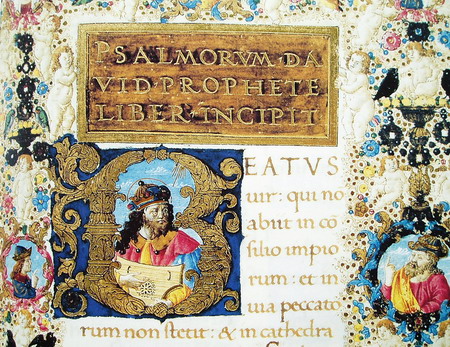 PSALMORVM·DA
VID·PROPHETE
LIBER·INCIPIT
BEATVS
uir: qui no
abiit in cō
silio impio
rum: et in
uia peccato
rum non stetit: & in cathedra